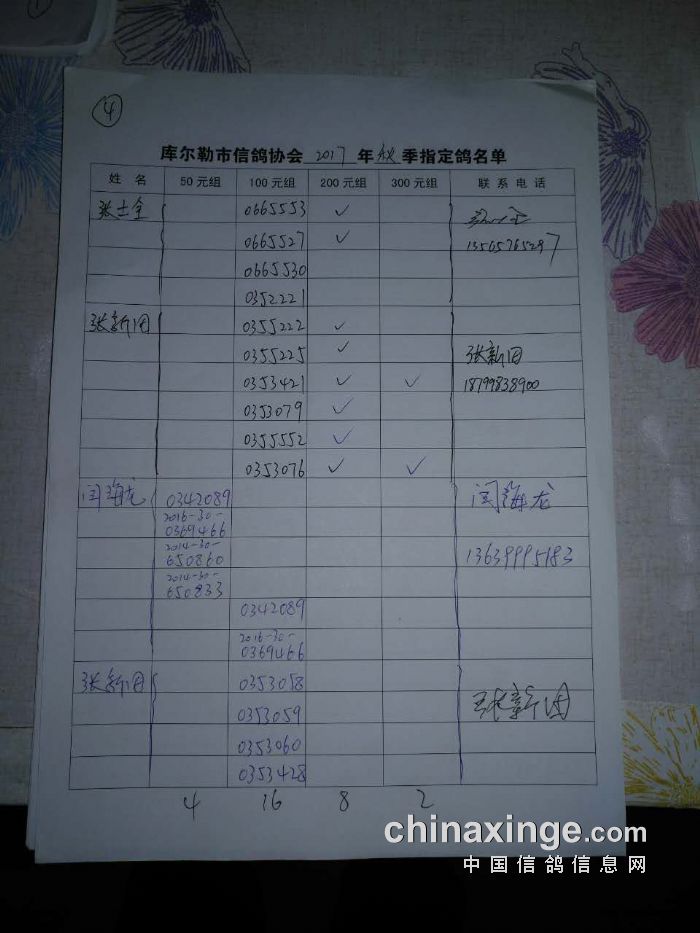 ④
库尔勒市信鸽协会 2017 年 秋 季指定鸽名单
姓 名 50元组 100元组 200元组 300元组 联系电话
张士全 0665553 ✓
0665527 ✓ 13565765297
0665530
0352221
张新国 0355222 ✓
0355225 ✓ 张新国
0353421 ✓ ✓ 18799838900
0353079 ✓
0355552 ✓
0353076 ✓ ✓
闫海龙 0342089 闫海龙
2016-30-
0369466
2014-30-
650860 13639995183
2014-30-
650833
0342089
2016-30-
0369466
张新国 0353058
0353059 张新国
0353060
0353428
4 16 8 2
chinaxinge.com
中国信鸽信息网